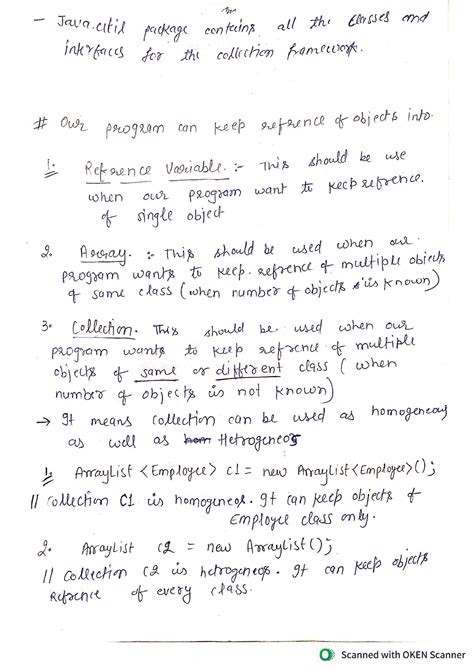 - Java.util package contains all the classes and
interfaces for the collection framework.
# Our program can keep reference of objects into.
1. Reference Variable :- This should be use
when our program want to keep reference.
of single object
2. Array. :- This should be used when our
program wants to keep. refrence of multiple objects
of same class (when number of objects is known)
3. Collection. This should be used when our
program wants to keep refrence of multiple
objects of same or different class (when
number of objects is not known)
→ It means collection can be used as homogeneous
as well as hom Hetrogeneos
1. ArrayList <Employee> c1 = new ArrayList<Employee>();
// Collection C1 is homogineos. It can keep objects of
Employee class only.
2. ArrayList c2 = new ArrayList();
// collection C2 is hetrogeneos. It can keep objects
Reference of every class.
Scanned with OKEN Scanner